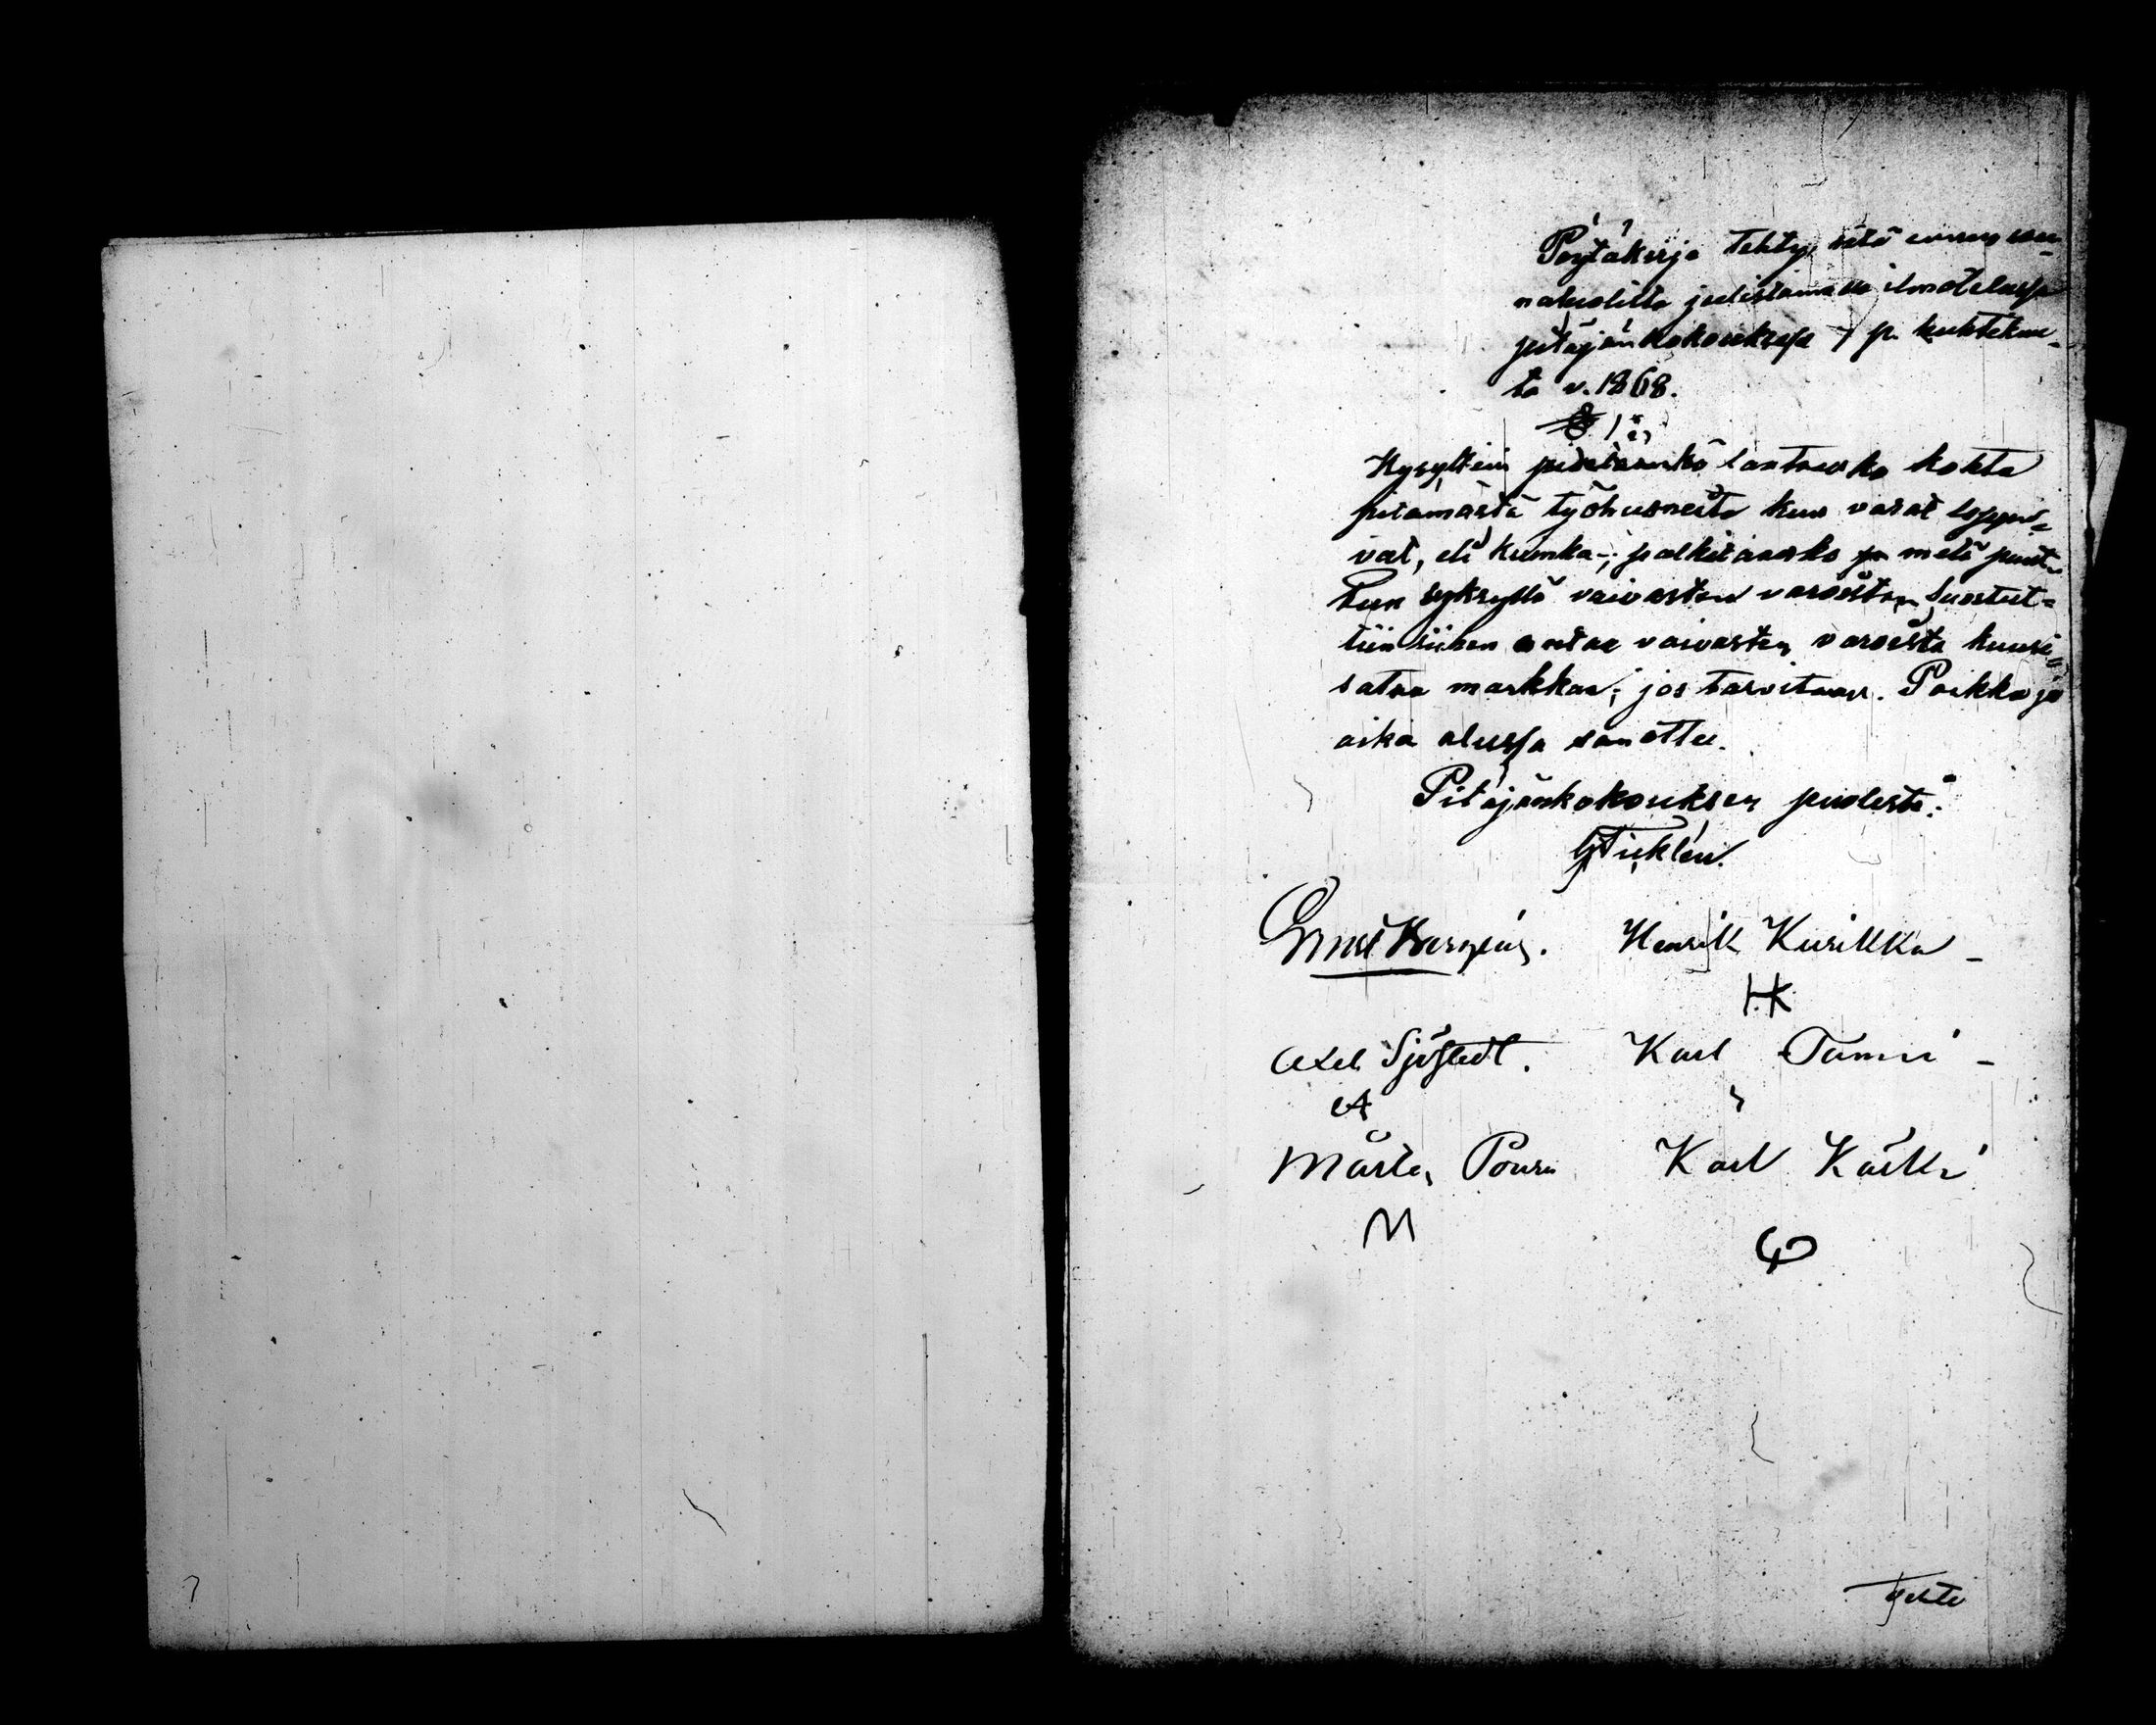 Pöytäkirja tehty, sitä ennen saar-
natuolilta julistamassa ilmotelussa
pitäjänkokouksessa 7 p. huhtikuu-
ta v. 1868.
§ 1:
Kysyttiin lautaanko kohta
pitämästä työhuoneita kun varat loppu-
vat, eli kuinka; palkitaanko metä puut-
tuu syksyllä vaivasten varoista, Suostut-
tiin siihen antaa vaivasten varoista kuusi-
sataa markkaa; jos tarvitaan. Paikka ja
aika alussa sanottu.
Pitäjänkokouksen puolesta:
Henrik Kurikka
HK
Axel Sjöstedt. Karl Tammi
A
Mårten Pouru Karl Kärki
M